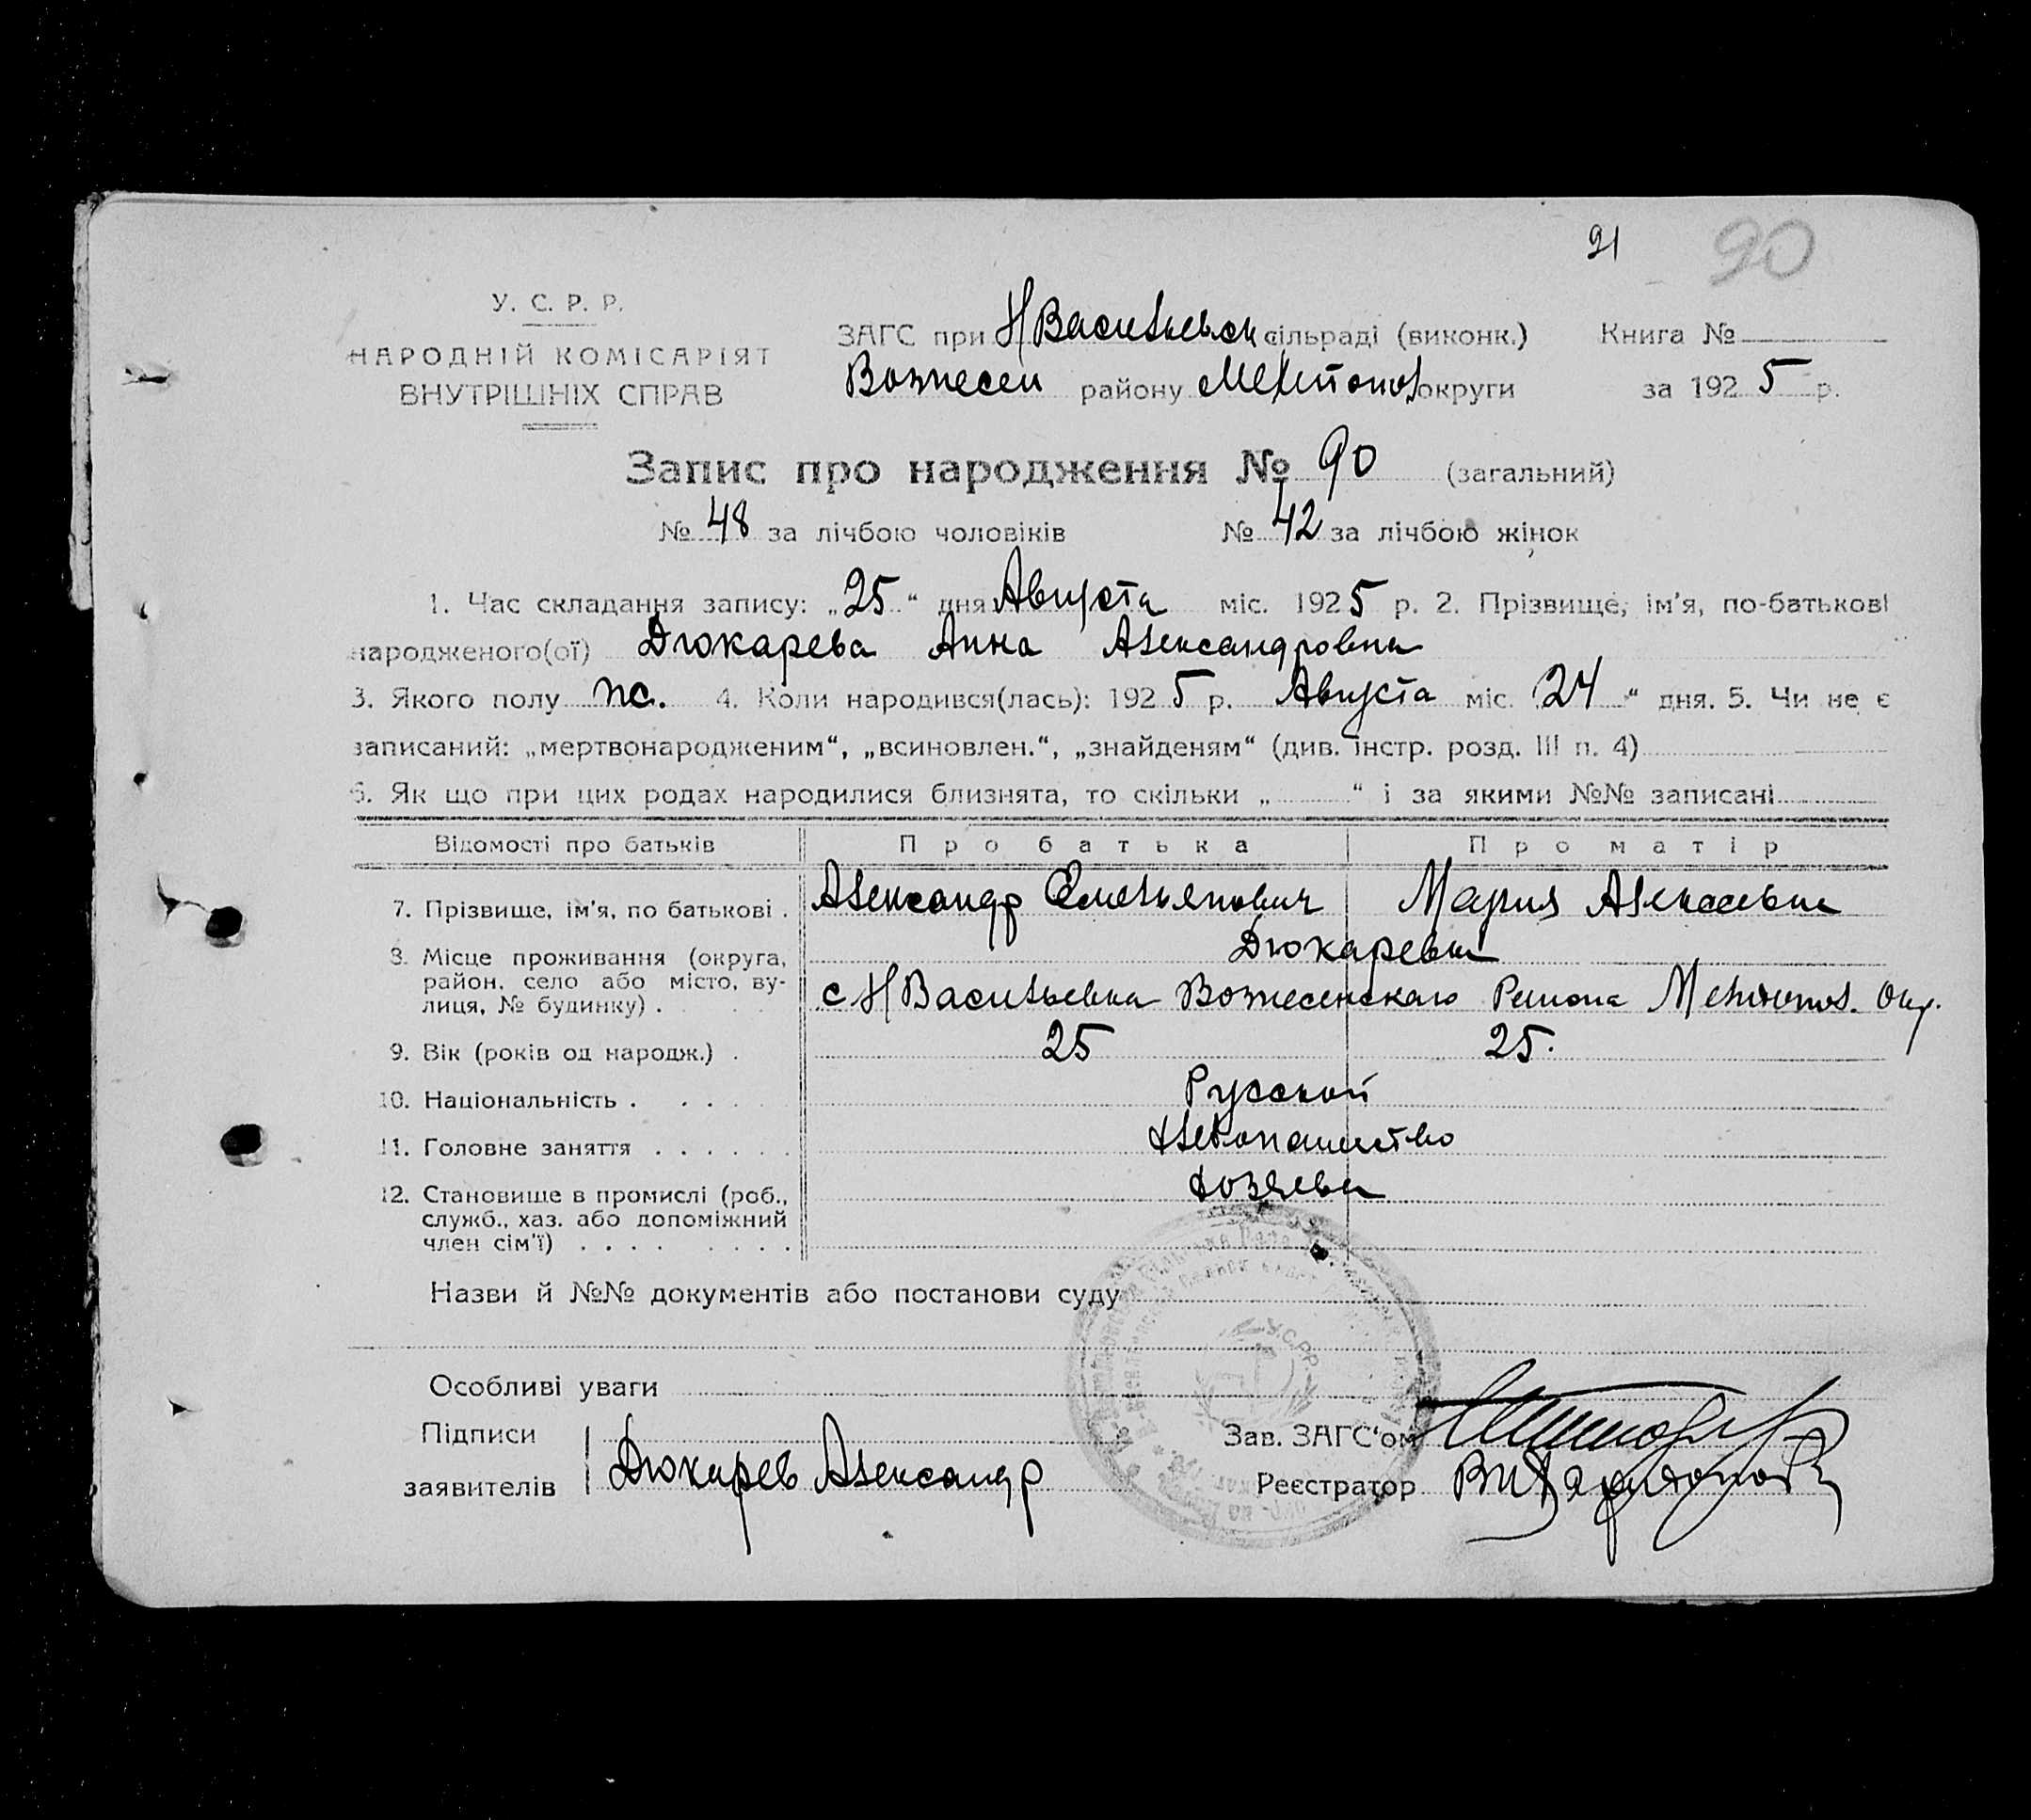 91 90
У. С. Р. Р.
НАРОДНІЙ КОМІСАРІЯТ
ВНУТРІШНІХ СПРАВ
ЗАГС при Н Васильевск сільраді (виконк.) Книга №
Вознесен району Мелитопол округи за 1925 р.
Запис про народження № 90 (загальний)
№ 48 за лічбою чоловіків № 42 за лічбою жінок
1. Час складання запису: „25“ дня Августа міс. 1925 р. 2. Прізвище, ім'я, по-батькові
народженого(ої) Дюкарева Анна Александровна
3. Якого полу ж. 4. Коли народився(лась): 1925 р. Августа міс. 24“ дня. 5. Чи не є
записаний: „мертвонародженим“, „всиновлен.“, „знайденям“ (див. інстр. розд. III п. 4)
6. Як що при цих родах народилися близнята, то скільки „ “ і за якими №№ записані
Відомості про батьків Про батька Про матір
7. Прізвище, ім'я, по батькові . Александр Емельянович Мария Алексеевна
Дюкаревы
8. Місце проживання (округа,
район, село або місто, ву-
лиця, № будинку) . с Н Васильевка Вознесенскаго Раиона Мелитопол. Окр.
9. Вік (років од народж.) . 25 25.
10. Національність . . . . . Русской
11. Головне заняття . . . . . . Хлебопашество
12. Становище в промислі (роб., Хозяева
служб., хаз. або допоміжний
член сім'ї) . . . . . . . .
Назви й №№ документів або постанови суду
У.С.Р.Р.
Особливі уваги
Підписи
заявителів Дюкарев Александр
Зав. ЗАГС'ом
Реєстратор